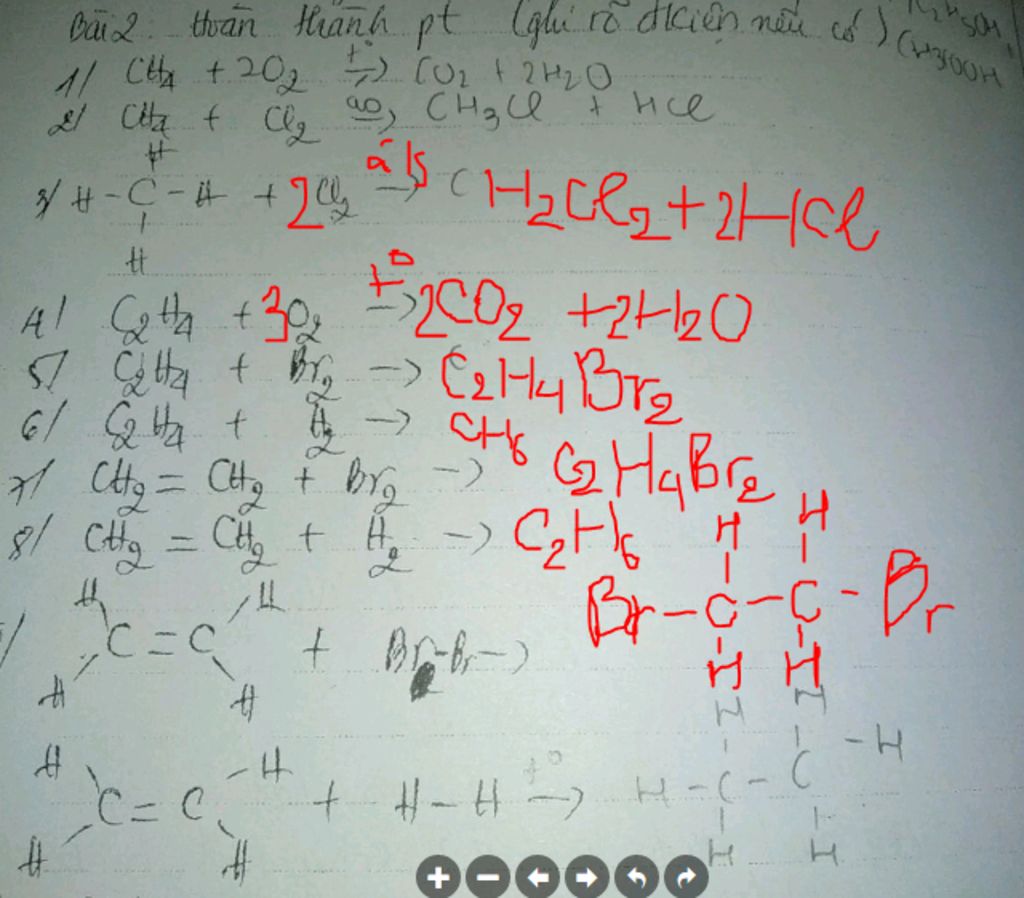 Bài 2: Hoàn thành pt (ghi rõ đkiện nếu có)
CH3COOH
1/ CH4 + 2O2 t°→ CO2 + 2H2O
2/ CH4 + Cl2 as→ CH3Cl + HCl
H
3/ H - C - H + 2Cl2 a's→ CH2Cl2 + 2HCl
H
4/ C2H4 + 3O2 t°→ 2CO2 + 2H2O
5/ C2H4 + Br2 → C2H4Br2
6/ C2H4 + H2 → CH6
7/ CH2 = CH2 + Br2 → C2H4Br2
8/ CH2 = CH2 + H2 → C2H6
H H
H H
C = C + Br-Br → Br - C - C - Br
H H H H
H H
H H
C = C + H - H t°→ H - C - C - H
H H H H